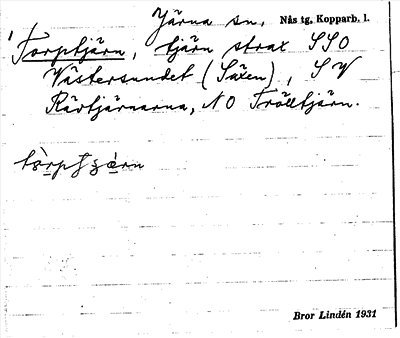 Järna sn. Nås tg, Kopparb. l.
Torptjärn, tjärn strax SSO
Västersundet (Säxen), SV
Rävtjärnarna, NO Trolltjärn.
Bror Lindén 1931